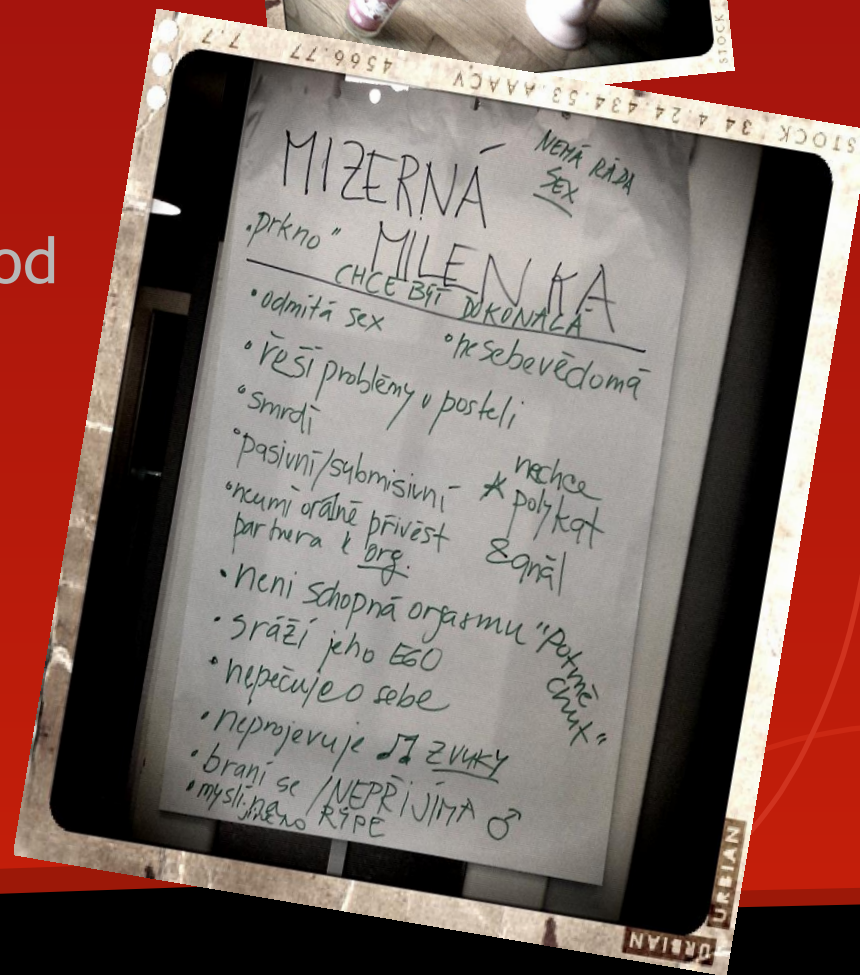 STOCK
7.7
4566.77
34 4.24.434.53.AAACV
STOCK
od
MIZERNÁ
MILENKA
NEMÁ RÁDA
SEX
„prkno"
CHCE BÝT DOKONALÁ
• odmítá sex
• nesebevědomá
• řeší problémy v posteli
• smrdí
• pasivní/submisivní
* nechce
polykat
& anál
• neumí orálně přivést
partnera k org.
• není schopná orgasmu
"Potmě
chuť"
• sráží jeho EGO
• nepečuje o sebe
• neprojevuje ♫ ZVUKY
• brání se /NEPŘIJÍMA ♂
• myslí na
JINÉHO
RÝPE
URBIAN
URBIAN